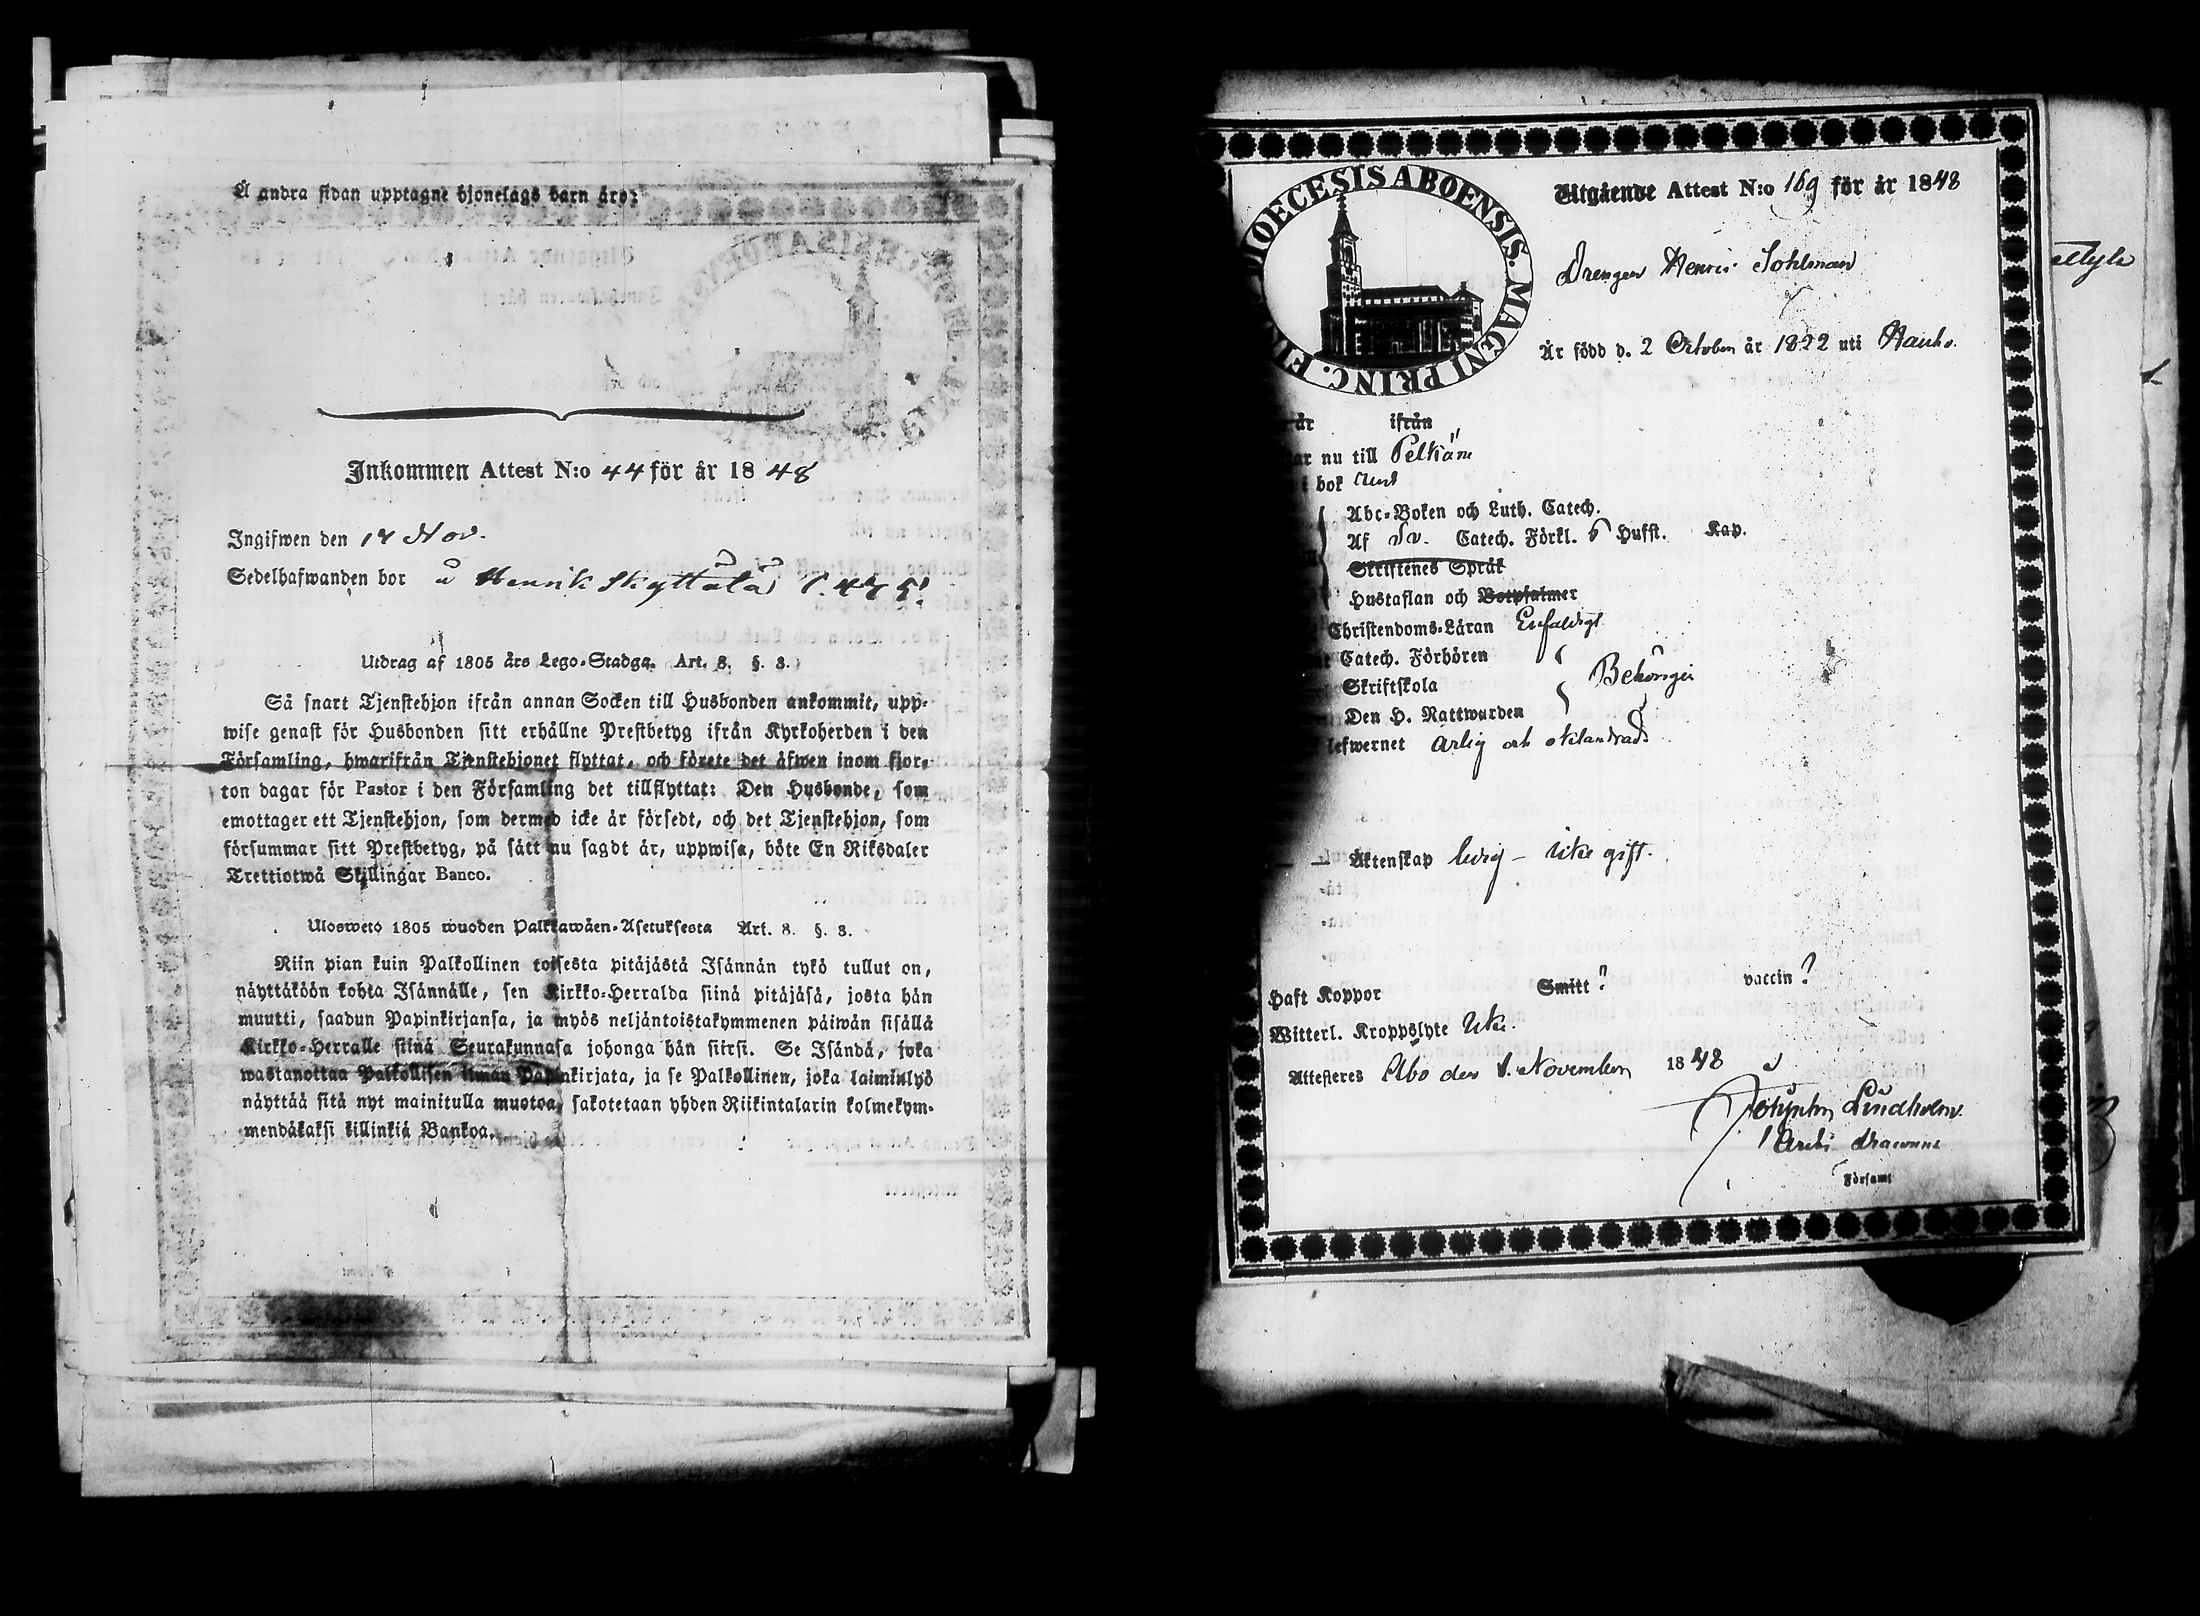 Å andra sidan upptagne hjonelags barn äro:
Inkommen Attest N:o 44 för år 1848
Ingifwen den 17 Nov.
Sedelhafwanden bor å Henrik Skyttälä
Utdrag af 1805 års Lego-Stadga. Art. 8. §. 3.
Så snart Tjenstehjon ifrån annan Socken till Husbonden ankommit, upp-
wise genast för Husbonden sitt erhållne Prestbetyg ifrån Kyrkoherden i den
Församling, hwarifrån Tjenstehjonet flyttat, och förete det äfwen inom fjor-
ton dagar för Pastor i den Församling det tillflyttat: Den Husbonde, som
emottager ett Tjenstehjon, som dermed icke är försedt, och det Tjenstehjon, som
försummar sitt Prestbetyg, på sätt nu sagdt är, uppwisa, böte En Riksdaler
Trettiotwå Skillingar Banco.
Ulosweto 1805 wuoden Palkkawäen-Asetuksesta Art. 8. §. 3.
Niin pian kuin Palkollinen toisesta pitäjästä Isännän tykö tullut on,
näyttäköön kohta Isännälle, sen Kirkko-Herralda siinä pitäjäsä, josta hän
muutti, saadun Papinkirjansa, ja myös neljäntoistakymmenen päiwän sisällä
Kirkko-Herralle siinä Seurakunnasa johonga hän siirsi. Se Isändä, joka
wastanottaa Palkollisen ilman Papinkirjata, ja se Palkollinen, joka laiminlyö
näyttää sitä nyt mainitulla muotoa, sakotetaan yhden Riikintalarin kolmekym-
mendäkaksi killinkiä Bankoa.
DIOECESIS ABOENSIS. MAGNI PRINC. FIN
Utgående Attest N:o 169 för år 1848
Drengen Henric Sohlman
Är född d. 2 October år 1822 uti Hauho.
är ifrån
ar nu till Pelkäne
i bok
Abc-Boken och Luth. Catech.
Af Catech. Förkl. Hufst. Kap.
Skriftenes Språk
Hustaflan och Botpsalmer
Christendoms-Läran Enfaldigt
Catech. Förhören
Skriftskola Behörigen
Den H. Nattwarden
lefwernet ärlig och oklandrad
Äktenskap ledig – icke gift.
Haft Koppor Smitt? vaccin?
Witterl. Kroppslyte Icke.
Attesteras Åbo den 1. November 1848
Lindholm
Församl